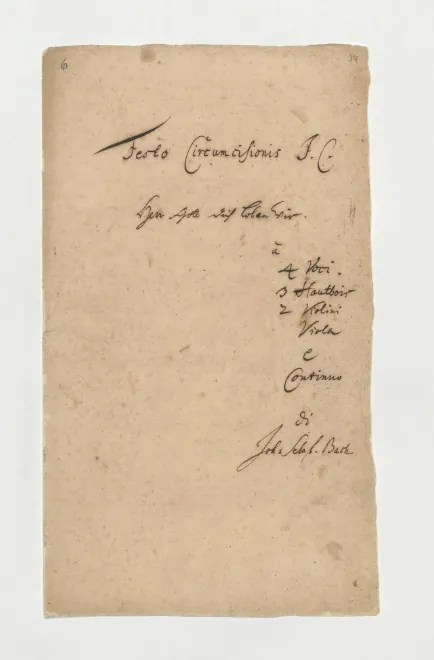 6 14
Festo Circumcisionis J. C.
Herr Gott dich loben wir.
à
4 Voci.
3 Hautbois
2 Violini
Viola
e
Continuo
di
Joh. Sebast. Bach